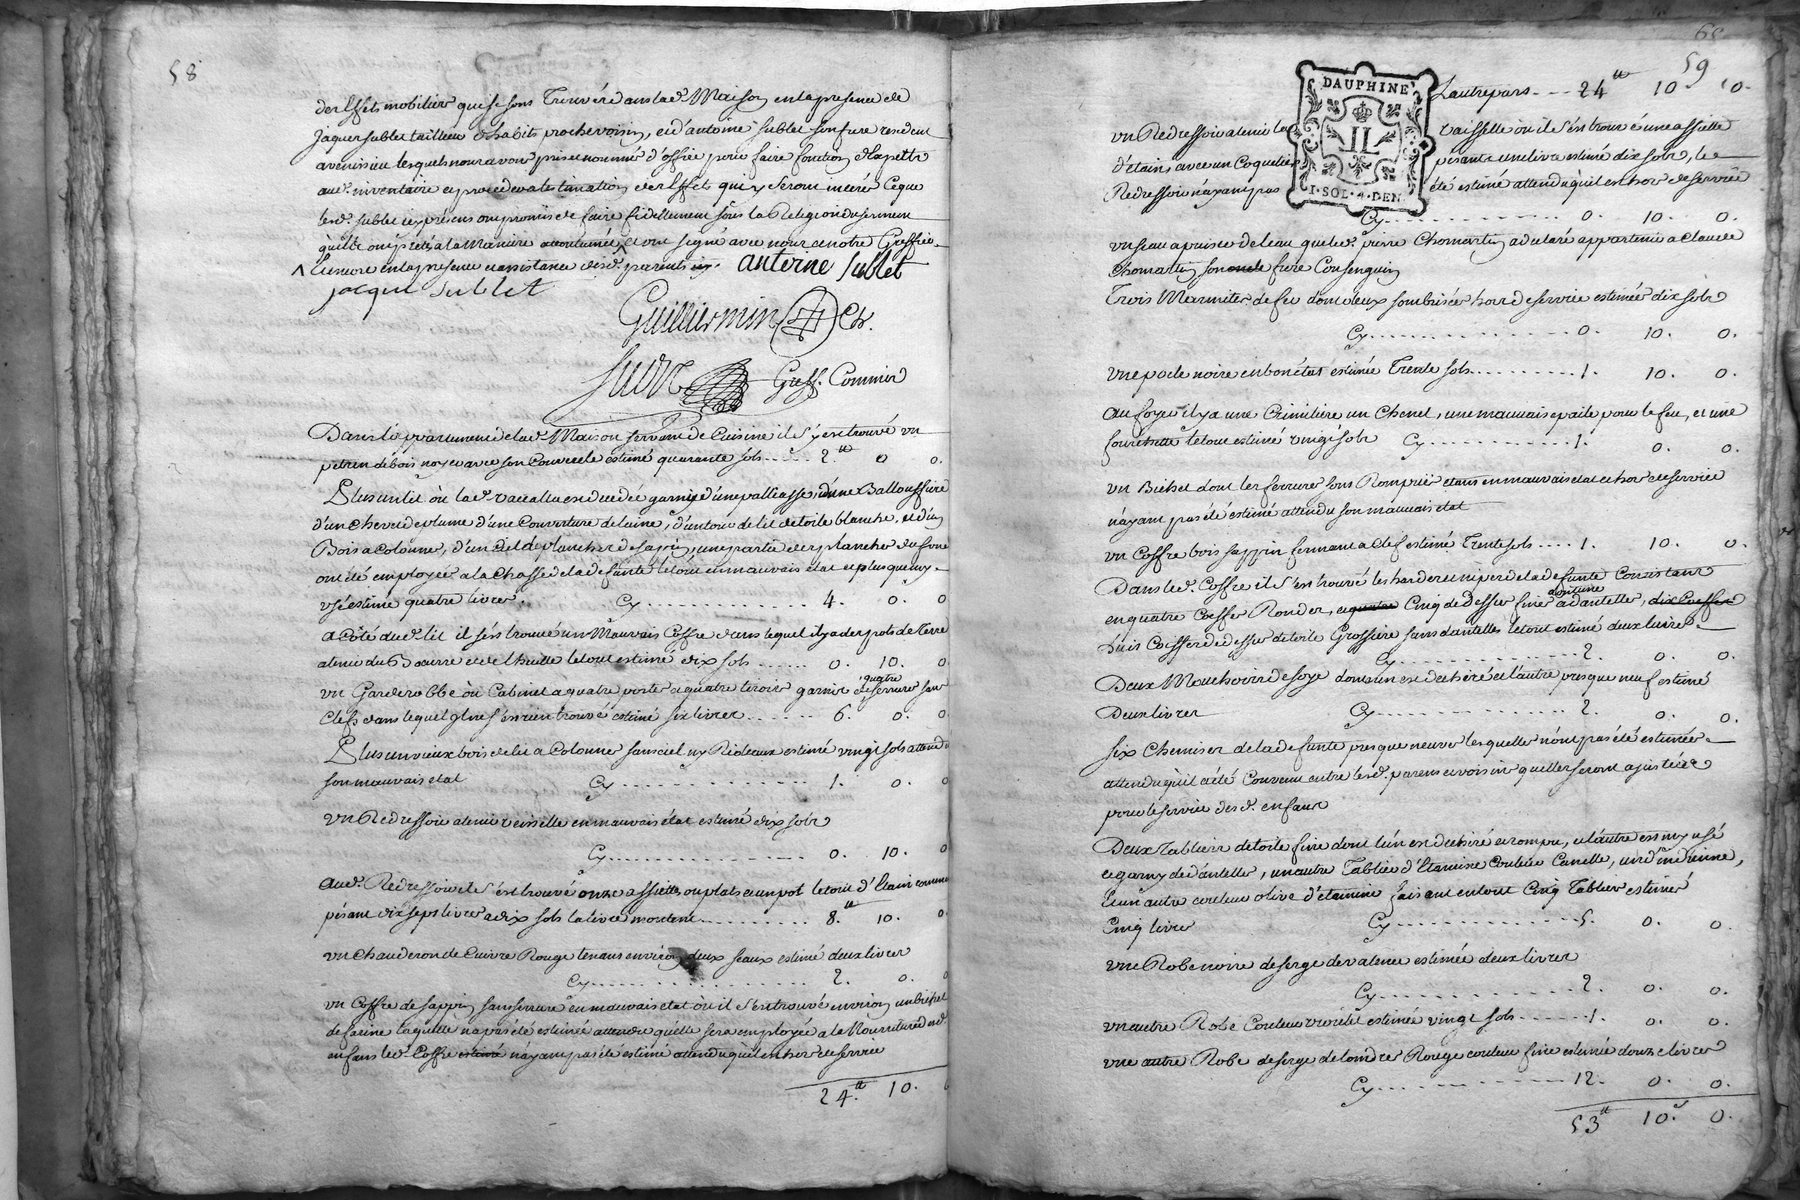 58
des Effets mobilier qui se sont Trouvé dans lad.e Maison en la presence de
Jaques sublet tailleur d'habits proche voisin, et d'antoine sublet son frere resident
avenissieu lesquels nous avons pris et nommés d'office pour faire fonction
aud. inventaire et proceder a lestimation des Effets qui y seront inserés Ceque
lesd. sublet icy présens ont promis de faire fidellement sous la Religion du serment
qu'ils ont prêté a la Maniere accoutumée, et ont signé avec nous et notre Greffier
en la presence et assistance desd. parents antoine sublet
jacque sublet
Guilliermin Ch.
Greff. Commis
Dans l'appartement de lad. Maison servant de Cuisine il s'y est trouvé un
petrin de bois noyer avec son Couvercle estimé quarante sols 2.tt 0 0.
Plus un lit où lad. est decedée garny d'une palliasse, d'une Balloussiere
d'un chevet de plume d'une Couverture de laine, d'un tour de lit de toile blanche, et d'un
Bois a colonne, d'un Ciel de plancher de sapin, une partie des planches du fond
ont été employées a la Chasse de la defunte le tout en mauvais état et plus que my
usé estimé quatre livres. Cy 4. 0. 0
a Côté dud. lit il s'est trouvé un Mauvais Coffre dans lequel il y a des pots de Terre
a tenir du Beurre et de l'huille le tout estimé dix sols 0. 10. 0
un Garderobbe où Cabinet a quatre portes a quatre tiroirs garnie de quatre serrures sans
clefs dans lequel il ne s'est rien trouvé estimé six livres 6. 0. 0
Plus un vieux bois de lit a Colonne sans ciel ny Rideaux estimé vingt sols attendu
son mauvais etat Cy 1. 0. 0
un Redressoir a tenir veisselle en mauvais état estimé dix sols
Cy 0. 10. 0
aud. Redressoir il s'est trouvé onze assiettes ou plats a un pot le tout d'Etain commun
pésant dix sept livres a dix sols la livre montent 8.tt 10. 0
un Chauderon de Cuivre Rouge tenant environ deux seaux estimé deux livres
Cy 2. 0. 0
un Coffre de sappin sans serrure en mauvais etat où il s'est trouvé environ un bichet
de farine laquelle n'a pas été estimée attendu qu'elle sera employée a la Nourriture des d.
enfans led. Coffre estimé n'ayant pas été estimé attendu qu'il en hors de service
24.tt 10.
59
DAUPHINÉ
II
1·SOL·4·DEN
L'autre part 24tt 10 0.
un Redressoir a tenir la vaisselle où il s'est trouvé une assiette
d'étain avec un Coquelier pésant une livre estimé dix sols, le
Redressoir n'ayant pas été estimé attendu qu'il est hors de service
Cy 0. 10. 0.
un seau a puiser de l'eau que led. pierre Chomartin a declaré appartenir a Claude
Chomartin son oncle frere Consenguin
Trois Marmites de feu dont deux sont brisées hors de service estimées dix sols
Cy 0. 10. 0.
une poile noire en bon état estimée Trente sols 1. 10. 0.
au foyer il y a une Crimiliere un Chenet, une mauvaise paile pour le feu, et une
fourchette le tout estimé vingt sols Cy 1. 0. 0.
un Bichet dont les ferrures sont Rompües etant en mauvais etat et hors de service
n'ayant pas été estimé attendu son mauvais état
un Coffre bois sappin fermant a clef estimé Trente sols 1. 10. 0.
Dans led. Coffre il s'est trouvé les hardes et nipes de la defunte Consistant
en quatre Coeffes Rondes, et quatre Cinq de dessus fines a dantelles, dix Coeffes
huit Coiffes de dessus de toile Grossiere sans dantelles le tout estimé deux livres
Cy 2. 0. 0.
Deux Mouchoirs de soye dont un est dechiré et l'autre presque neuf estimé
Deux livres Cy 2. 0. 0.
six Chemises de la defunte presque neuves lesquelles n'ont pas été estimées
attendu qu'il a été Convenu entre lesd. parens et voisins qu'elles seront ajustées
pour le service desd. enfans
Deux Tabliers de toile fine dont l'un est dechiré et rompu, et l'autre est my usé
et garny de dantelles, un autre Tablier d'Etamine Couleur Canelle, un d'indienne,
et un autre couleur olive d'étamine faisant en tout Cinq Tabliers estimés
Cinq livres Cy 5. 0. 0.
une Robe noire de serge de valence estimée deux livres
Cy 2. 0. 0.
un autre Robe Couleur violette estimée vingt sols 1. 0. 0.
une autre Robe de serge de londres Rouge couleur fine estimée douze livres
Cy 12. 0. 0.
53tt 10.s 0.